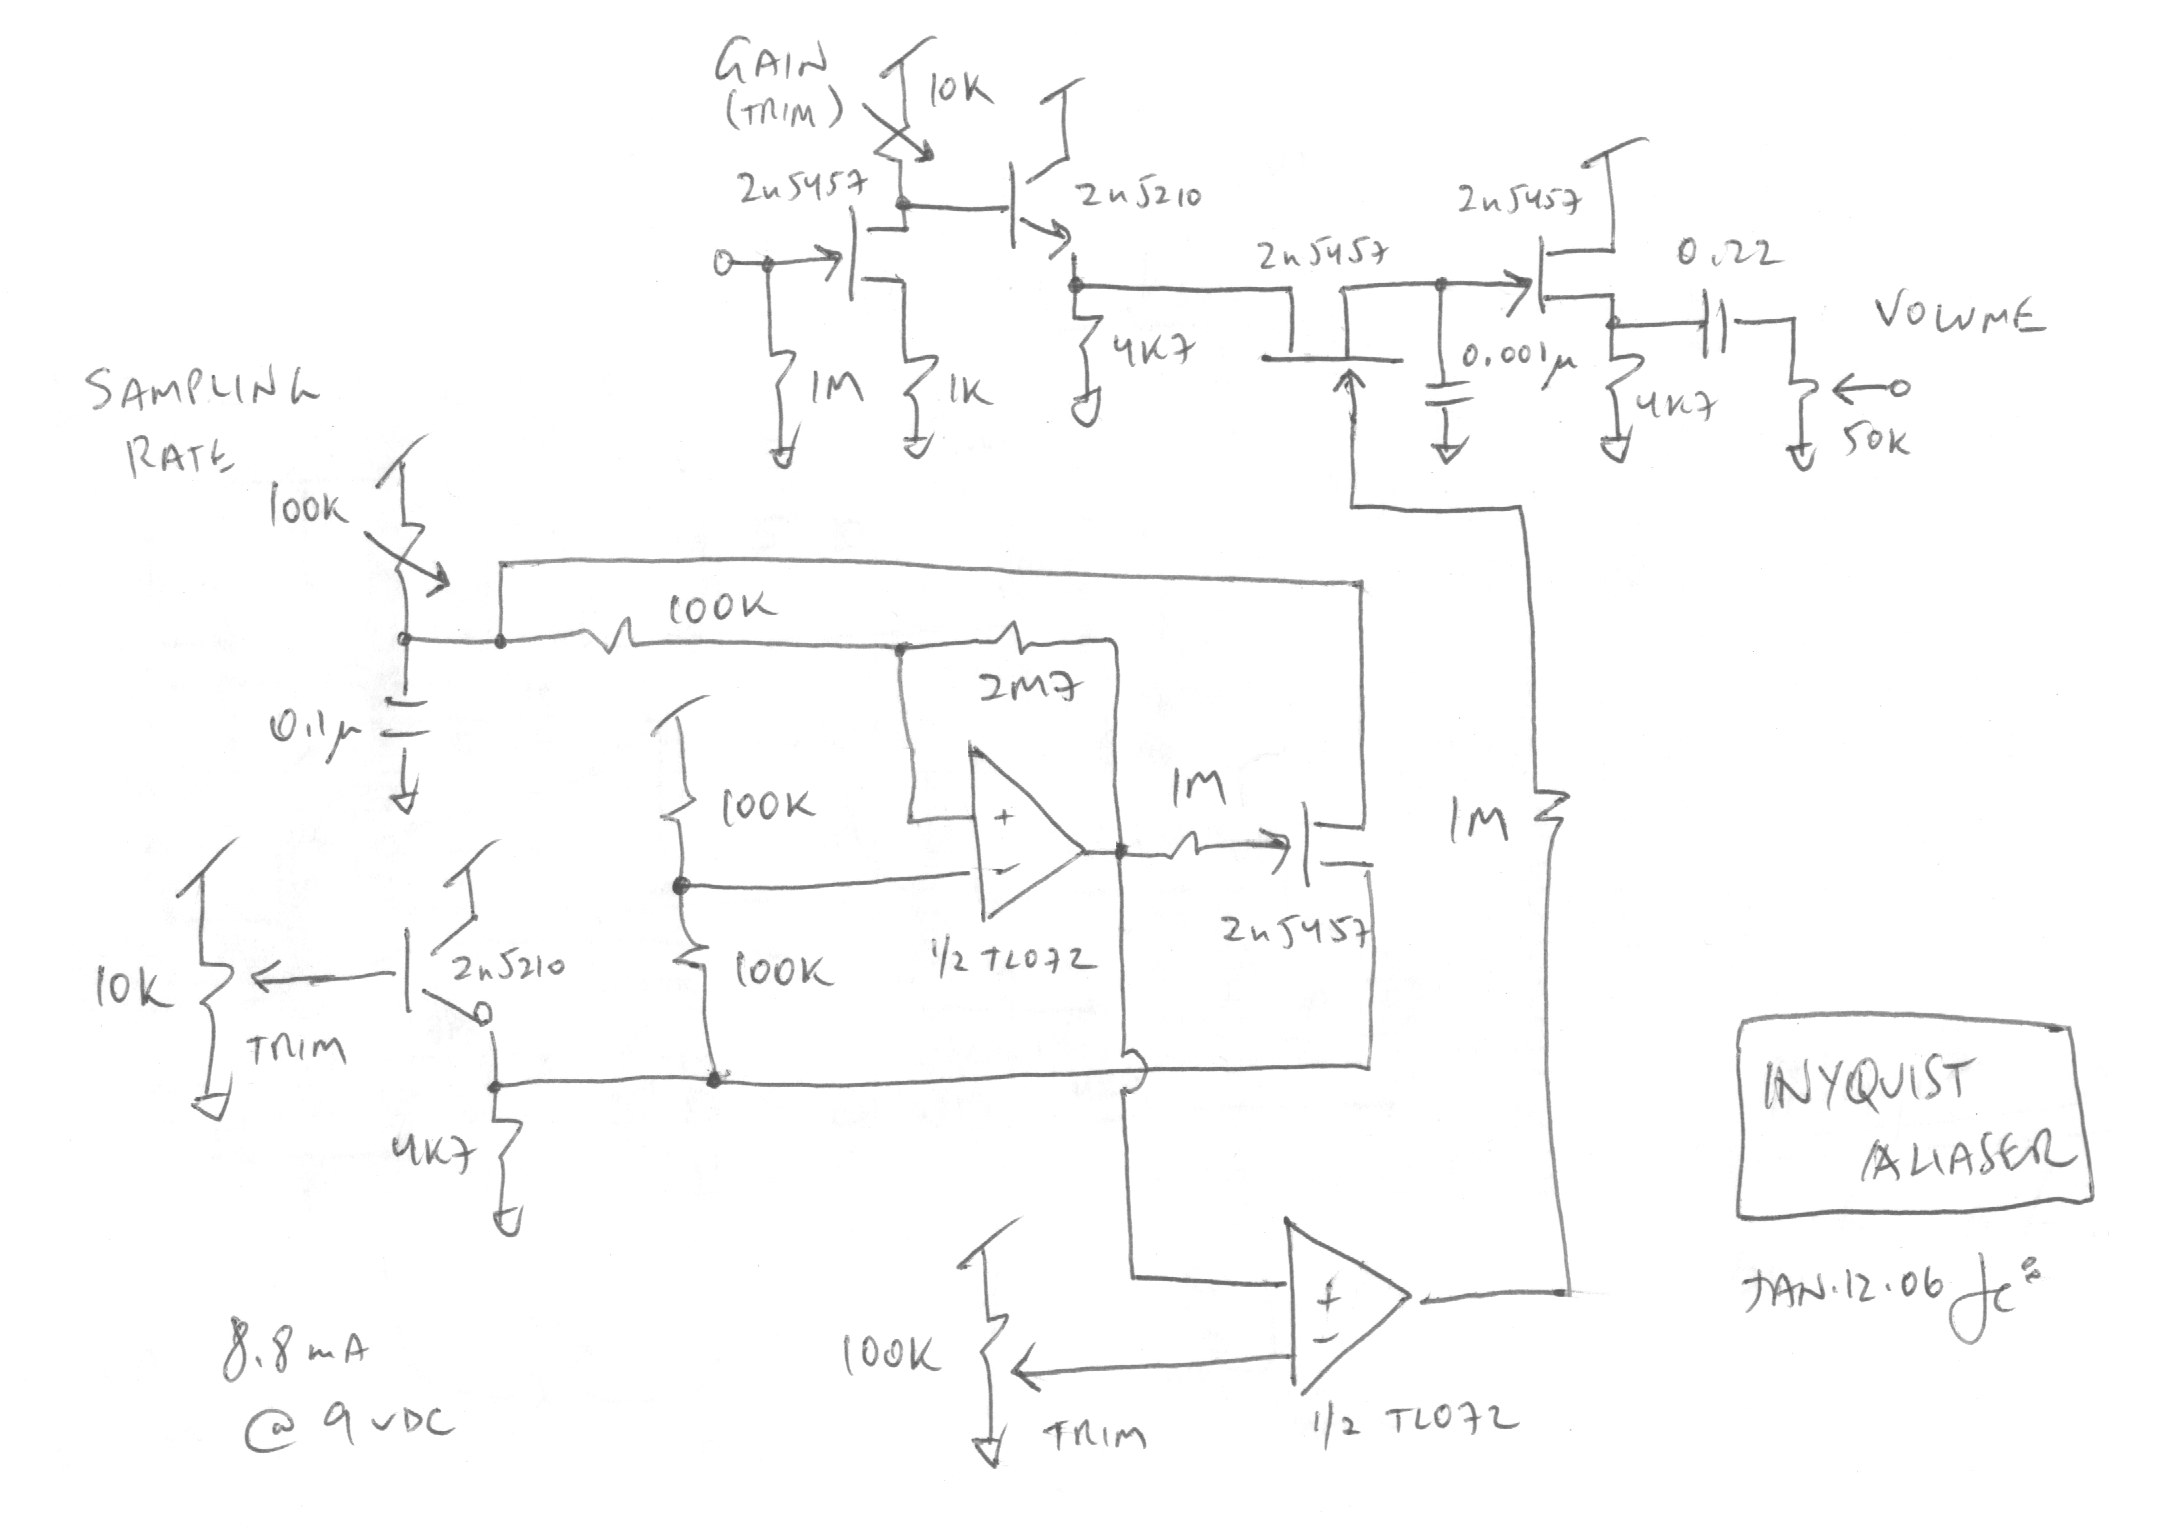 GAIN
(TRIM)
10K
2n5457
2n5210
2n5457
2n5457
0.22
VOLUME
1M
1K
4K7
0.001µ
4K7
50K
SAMPLING
RATE
100K
100K
2M7
0.1µ
100K
+
-
1M
1M
10K
2n5210
100K
1/2 TL072
2n5457
TRIM
4K7
INYQUIST
ALIASER
+
-
100K
TRIM
1/2 TL072
JAN.12.06
8.8mA
@ 9VDC